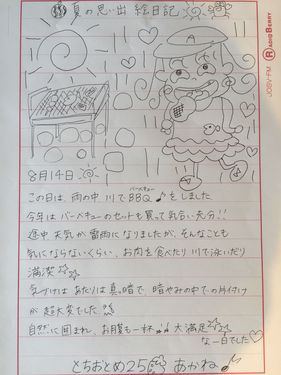 夏の思い出 絵日記
RADIO BERRY
JOBV-FM
A
8月14日
この日は、雨の中 川でBBQをしました
バーベキュー
今年はバーベキューのセットも買って気合い充分!!
途中天気が雷雨になりましたが、そんなことも
気にならないくらい、お肉を食べたり川で泳いだり
満喫
気づけばあたりは真っ暗で 暗やみの中での片付け
が超大変でした!!
自然に囲まれ、お腹も一杯 大満足
な一日でした
とちおとめ25 あかね